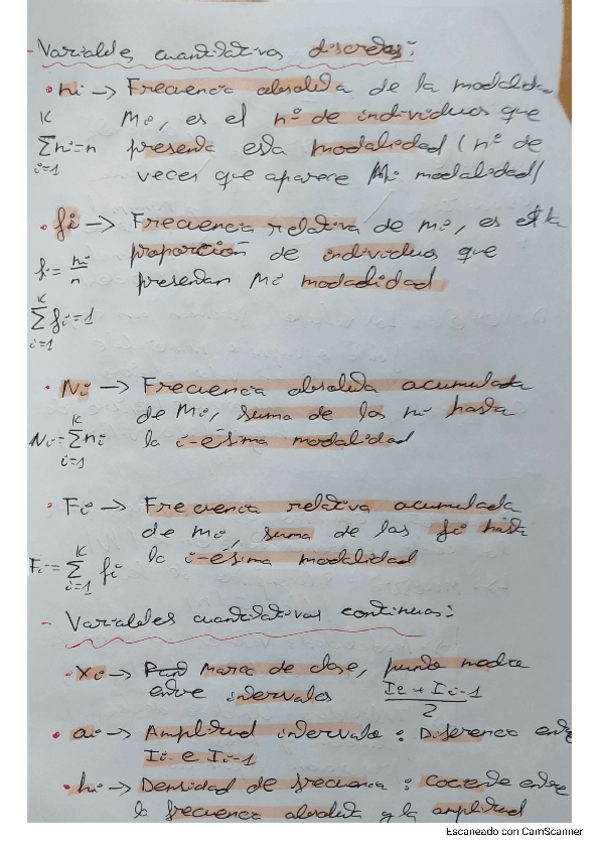 - Variables cuantitativas discretas:
• ni → Frecuencia absoluta de la modalidad
K Mi, es el nº de individuos que
Σni=n presenta esta modalidad (nº de
i=1 veces que aparece Mi modalidad)
• fi → Frecuencia relativa de mi, es la
proporción de individuos que
fi = ni/n presentan Mi modadidad
K
Σ fi=1
i=1
• Ni → Frecuencia absoluta acumulada
de Mi, suma de las ni hasta
K
Ni=Σni la i-ésima modalidad
i=1
• Fi → Frecuencia relativa acumulada
de Mi, suma de las fi hasta
K la i-ésima modalidad
Fi=Σ fi
i=1
- Variables cuantitativas continuas:
• Xi → Marca de clase, punto medio
entre intervalos Ii + Ii-1 / 2
• ai → Amplitud intervalo: Diferencia entre
Ii e Ii-1
• hi → Densidad de frecuencia: Cociente entre
la frecuencia absoluta y la amplitud
Escaneado con CamScanner